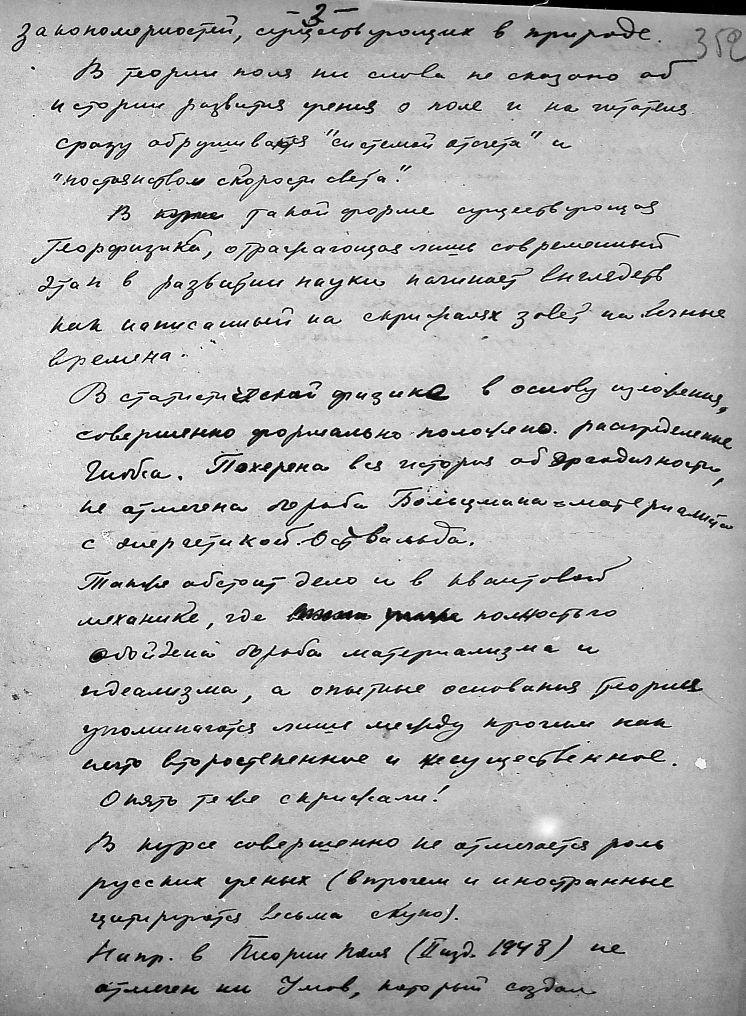 - 3 -
352
закономерностей, существующих в природе.
В теории поля ни слова не сказано об
истории развития учения о поле и на читателя
сразу обрушивается "системой отсчета" и
"постоянством скорости света".
В такой форме существующая
теорфизика, отражающая лишь современный
этап в развитии науки начинает выглядеть
как написанный на скрижалях завет на вечные
времена.
В статистической физике в основу изложения,
совершенно формально положено распределение
Гиббса. Похерена вся история об эргодичности,
не отмечена борьба Больцмана-материалиста
с энергетикой Оствальда.
Также обстоит дело и в квантовой
механике, где полностью
обойдена борьба материализма и
идеализма, а опытные основания теории
упоминаются лишь между прочим как
нечто второстепенное и несущественное.
Опять те же скрижали!
В курсе совершенно не отмечается роль
русских ученых (впрочем и иностранные
цитируются весьма скупо).
Напр. в Теории Поля (II изд. 1948) не
отмечен ни Умов, который создал